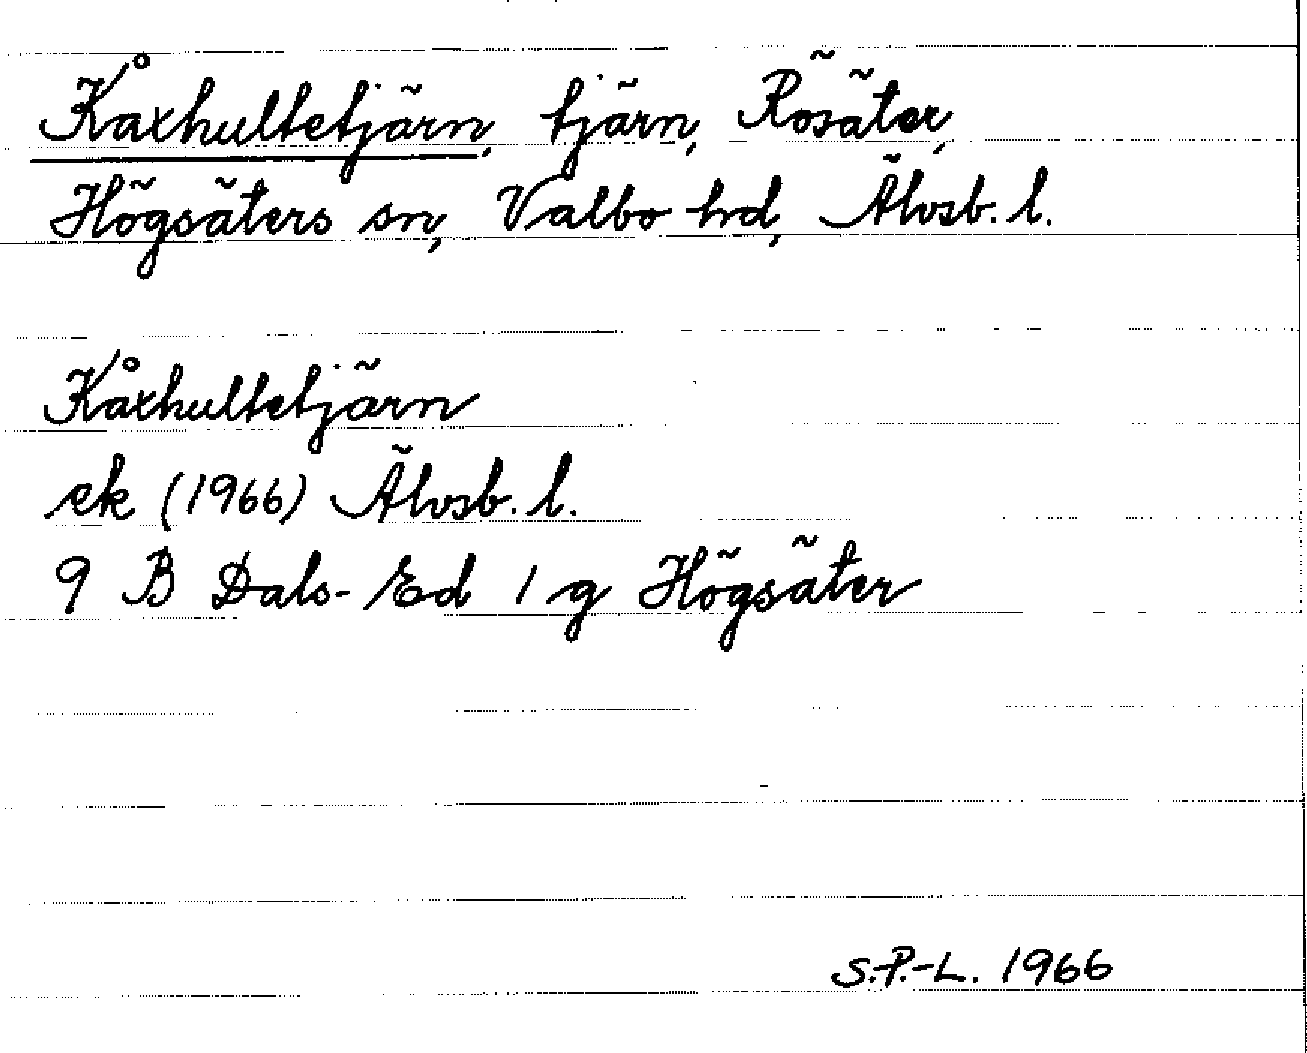 Kåxhultetjärn, tjärn, Rösäter,
Högsäters sn, Valbo hd, Älvsb. l.
Kåxhultetjärn
ek (1966) Älvsb. l.
9 B Dals-Ed 1 g Högsäter
S.P.-L. 1966